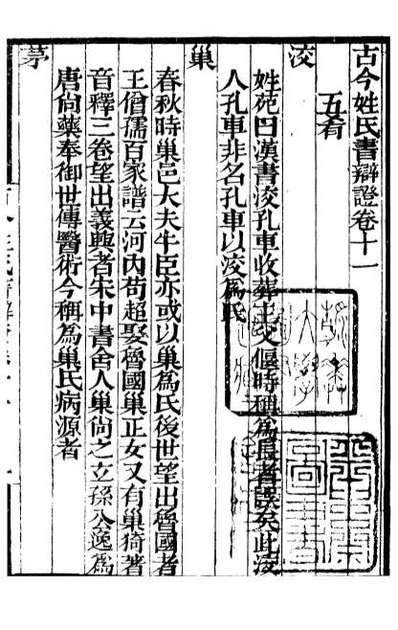 古今姓氏書辯證卷十一
五肴
洨
姓苑曰漢書洨孔車收葬主父偃時稱為長者誤矣此洨
人孔車非名孔車以洨為氏
巢
春秋時巢邑大夫牛臣亦或以巢為氏後世望出魯國者
王僧孺百家譜云河內苟超娶魯國巢正女又有巢猗著
音釋三卷望出義興者宋中書舍人巢尚之立孫公逸為
唐尚藥奉御世傳醫術今稱為巢氏病源者
茅